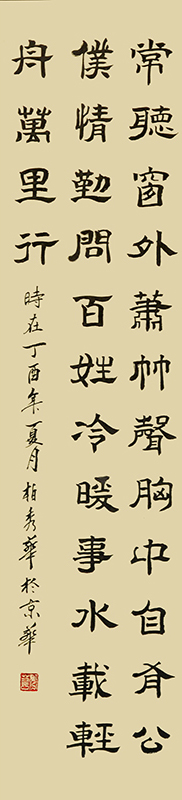 常聽窗外蕭竹聲胸中自有公
僕情勤問百姓冷暖事水載輕
舟萬里行
時在丁酉年夏月柏秀華於京華